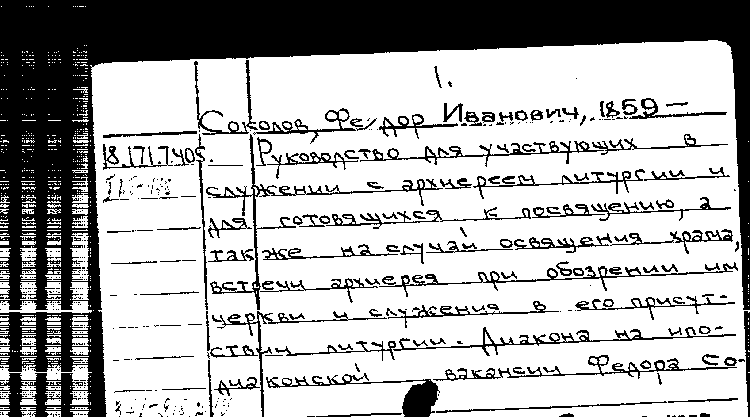 1.
Соколов, Федор Иванович, 1859 —
18.171.7.405. Руководство для участвующих в
служении с архиереем литургии и
для готовящихся к посвящению, а
также на случай освящения храма,
встречи архиерея при обозрении им
церкви и служения в его присут-
ствии литургии. Диакона на ипо-
диаконской вакансии Федора Со-